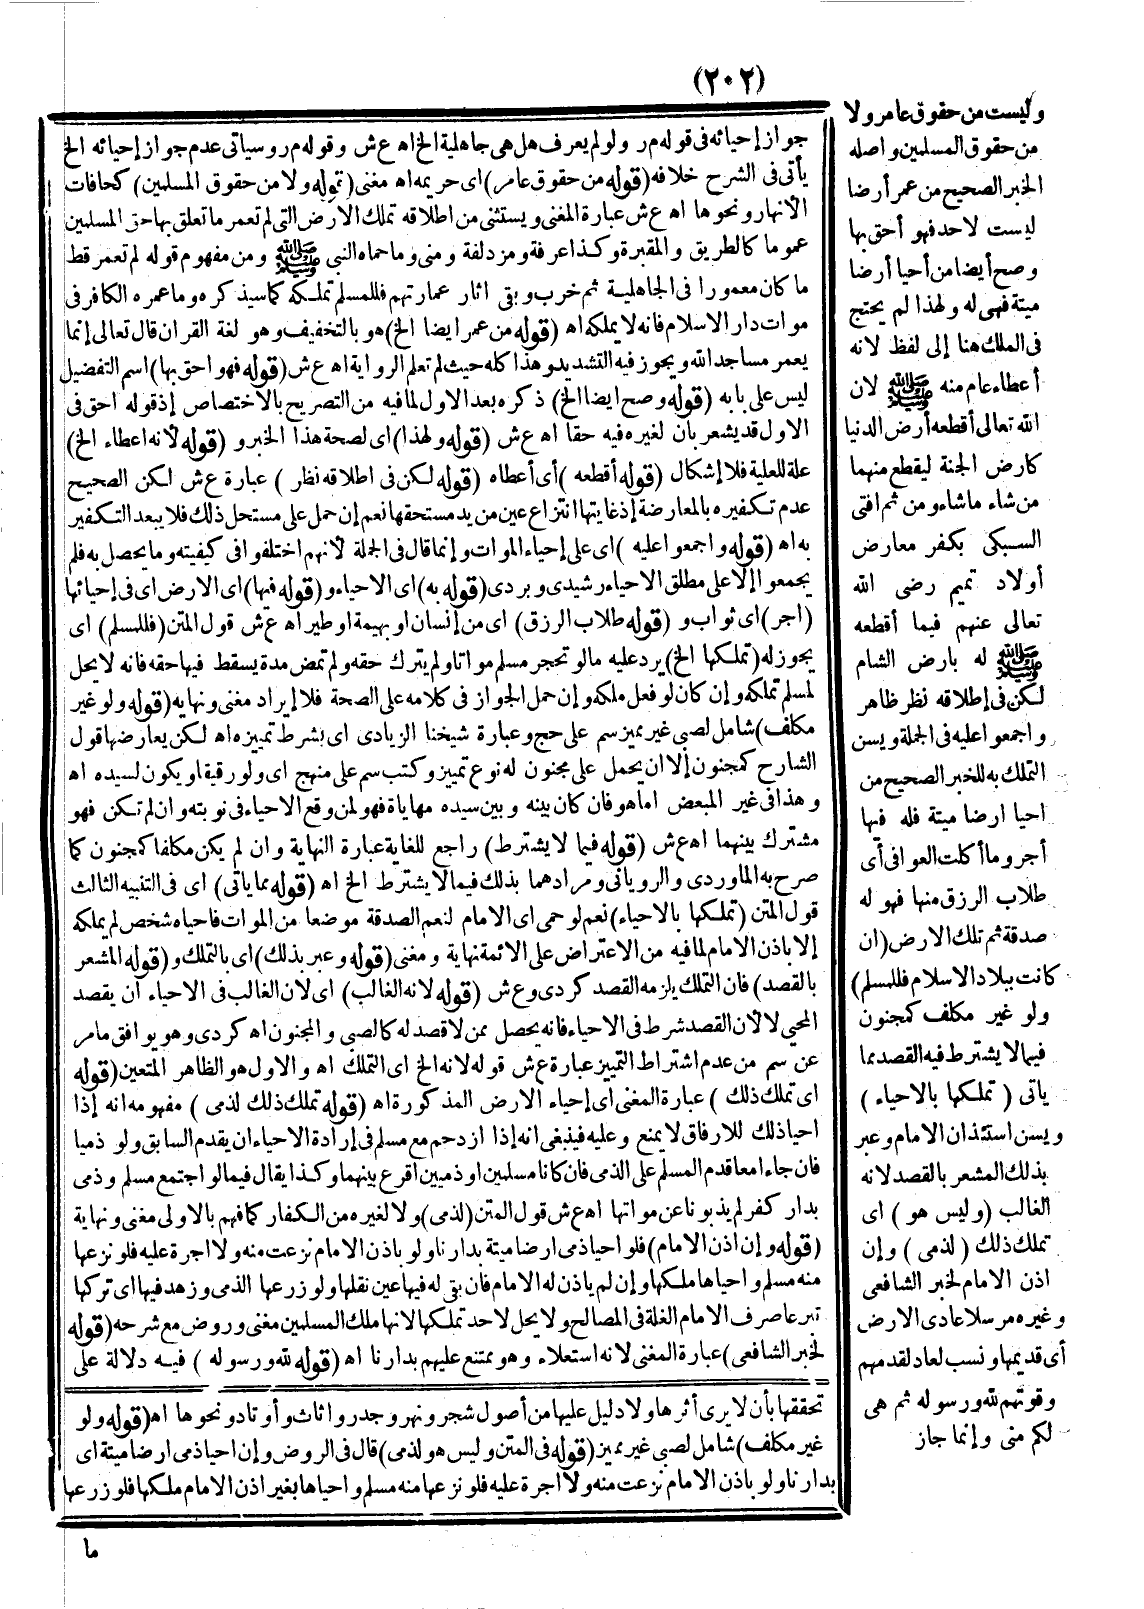 (٢٠٢)
وليست من حقوق عامر ولا
من حقوق المسلمين واصله
الخبر الصحيح من عمر أرضا
ليست لاحد فهو أحق بها
وصح أيضا من أحيا أرضا
ميتة فهى له ولهذا لم يحتج
فى الملك هنا إلى لفظ لانه
أعطاء عام منه ﷺ لان
الله تعالى أقطعه أرض الدنيا
كارض الجنة ليقطع منهما
من شاء ما شاء ومن ثم افتى
السبكى بكفر معارض
أولاد تميم رضى الله
تعالى عنهم فيما أقطعه
ﷺ له بارض الشام
لكن فى إطلاقه نظر ظاهر
واجمعوا عليه فى الجملة ويسن
التملك به للخبر الصحيح من
احيا ارضا ميتة فله فيها
أجر وما أكلت العوافى أى
طلاب الرزق منها فهو له
صدقة ثم تلك الارض (ان
كانت ببلاد الاسلام فللمسلم)
ولو غير مكلف كمجنون
فيما لا يشترط فيه القصد مما
ياتى (تملكها بالاحياء)
ويسن استئذان الامام وعبر
بذلك المشعر بالقصد لانه
الغالب (وليس هو) اى
تملك ذلك (لذمى) وإن
اذن الامام لخبر الشافعى
وغيره مرسلا عادى الارض
أى قديمها ونسب لعاد لقدمهم
وقوتهم لله ورسوله ثم هى
لكم منى وإنما جاز
جواز إحيائه فى قوله م ر ولو لم يعرف هل هى جاهلية الخ اه ع ش وقوله م ر وسياتى عدم جواز إحيائه الخ
يأتى فى الشرح خلافه (قوله من حقوق عامر) اى حريمه اه مغنى (قوله ولا من حقوق المسلمين) كحافات
الانهار ونحوها اه ع ش عبارة المغنى ويستثنى من اطلاقه تملك الارض التى لم تعمر ما تعلق بها حق المسلمين
عموما كالطريق والمقبرة وكذا عرفة ومزدلفة ومنى وما حماه النبى ﷺ ومن مفهوم قوله لم تعمر قط
ما كان معمورا فى الجاهلية ثم خرب وبقى اثار عمارتهم فللمسلم تملكه كما سيذكره وما عمره الكافر فى
موات دار الاسلام فانه لا يملكه اه (قوله من عمر ايضا الخ) هو بالتخفيف وهو لغة القران قال تعالى إنما
يعمر مساجد الله ويجوز فيه التشديد وهذا كله حيث لم تعلم الرواية اه ع ش (قوله فهو احق بها) اسم التفضيل
ليس على بابه (قوله وصح ايضا الخ) ذكره بعد الاول لما فيه من التصريح بالاختصاص إذ قوله احق فى
الاول قد يشعر بان لغيره فيه حقا اه ع ش (قوله ولهذا) اى لصحة هذا الخبر و (قوله لانه اعطاء الخ)
علة للعلية فلا إشكال (قوله أقطعه) أى أعطاه (قوله لكن فى اطلاقه نظر) عبارة ع ش لكن الصحيح
عدم تكفيره بالمعارضة إذ غايتها انتزاع عين من يد مستحقها نعم إن حمل على مستحل ذلك فلا يبعد التكفير
به اه (قوله واجمعوا عليه) اى على إحياء الموات وإنما قال فى الجملة لانهم اختلفوا فى كيفيته وما يحصل به فلم
يجمعوا إلا على مطلق الاحياء رشيدى وبردى (قوله به) اى الاحياء و (قوله فيها) اى الارض اى فى إحيائها
(اجر) اى ثواب و (قوله طلاب الرزق) اى من إنسان او بهيمة او طير اه ع ش قول المتن (فللمسلم) اى
يجوز له (تملكها الخ) يرد عليه ما لو تحجر مسلم مواتا ولم يترك حقه ولم تمض مدة يسقط فيها حقه فانه لا يحل
لمسلم تملكه وإن كان لو فعل ملكه وإن حمل الجواز فى كلامه على الصحة فلا إيراد مغنى ونهايه (قوله ولو غير
مكلف) شامل لصبى غير مميز سم على حج وعبارة شيخنا الزيادى اى بشرط تمييزه اه لكن يعارضها قول
الشارح كمجنون إلا ان يحمل على مجنون له نوع تمييز وكتب سم على منهج اى ولو رقيقا ويكون لسيده اه
وهذا فى غير المبعض اما هو فان كان بينه وبين سيده مهاياة فهو لمن وقع الاحياء فى نوبته وان لم تكن فهو
مشترك بينهما اه ع ش (قوله فيما لا يشترط) راجع للغاية عبارة النهاية وان لم يكن مكلفا كمجنون كما
صرح به الماوردى والرويانى ومرادهما بذلك فيما لا يشترط الخ اه (قوله مما ياتى) اى فى التنبيه الثالث
قول المتن (تملكها بالاحياء) نعم لو حمى اى الامام لنعم الصدقة موضعا من الموات فاحياه شخص لم يملكه
إلا باذن الامام لما فيه من الاعتراض على الائمة نهاية ومغنى (قوله وعبر بذلك) اى بالتملك و (قوله المشعر
بالقصد) فان التملك يلزمه القصد كردى وع ش (قوله لانه الغالب) اى لان الغالب فى الاحياء ان يقصد
المحيى لا لان القصد شرط فى الاحياء فانه يحصل ممن لا قصد له كالصبى والمجنون اه كردى وهو يوافق ما مر
عن سم من عدم اشتراط التمييز عبارة ع ش قوله لانه الخ اى التملك اه والاول هو الظاهر المتعين (قوله
اى تملك ذلك) عبارة المغنى اى إحياء الارض المذكورة اه (قوله تملك ذلك لذمى) مفهومه انه إذا
احيا ذلك للارفاق لا يمنع وعليه فينبغى انه إذا ازدحم مع مسلم فى إرادة الاحياء ان يقدم السابق ولو ذميا
فان جاءا معا قدم المسلم على الذمى فان كانا مسلمين او ذميين اقرع بينهما وكذا يقال فيما لو اجتمع مسلم وذمى
بدار كفر لم يذبونا عن مواتها اه ع ش قول المتن (لذمى) ولا لغيره من الكفار كما فهم بالاولى مغنى ونهاية
(قوله وإن اذن الامام) فلو احيا ذمى ارضا ميتة بدارنا ولو باذن الامام نزعت منه ولا اجرة عليه فلو نزعها
منه مسلم واحياها ملكها وإن لم ياذن له الامام فان بقى له فيها عين نقلها ولو زرعها الذمى وزهد فيها اى تركها
تبرعا صرف الامام الغلة فى المصالح ولا يحل لاحد تملكها لانها ملك المسلمين مغنى وروض مع شرحه (قوله
لخبر الشافعى) عبارة المغنى لانه استعلاء وهو ممتنع عليهم بدارنا اه (قوله لله ورسوله) فيه دلالة على
تحققها بأن لا يرى أثرها ولا دليل عليها من أصول شجر ونهر وجدر واثاث وأوتاد ونحوها اه (قوله ولو
غير مكلف) شامل لصبى غير مميز (قوله فى المتن وليس هو لذمى) قال فى الروض وإن احيا ذمى ارضا ميتة اى
بدارنا ولو باذن الامام نزعت منه ولا اجرة عليه فلو نزعها منه مسلم واحياها بغير اذن الامام ملكها فلو زرعها
ما